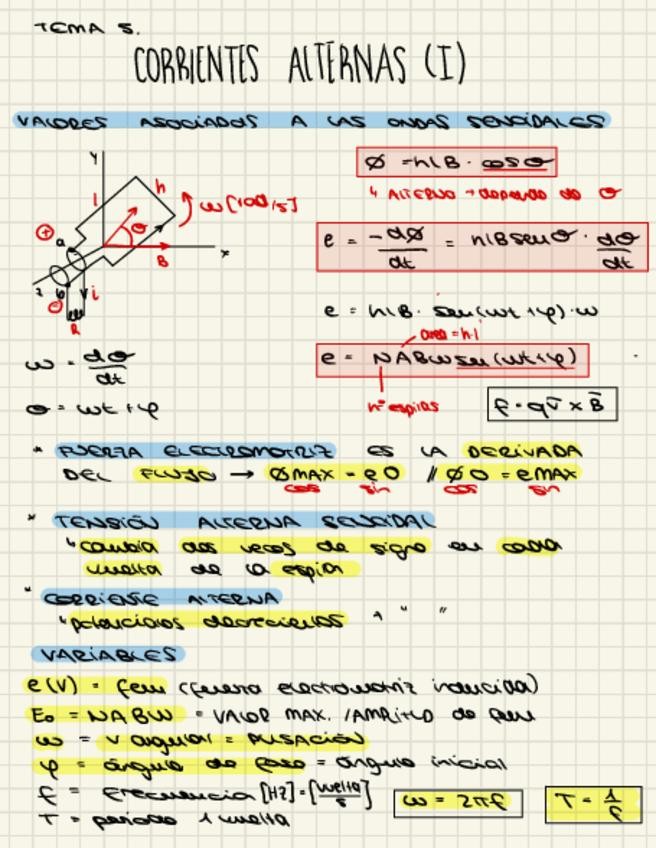 TEMA 5.
CORRIENTES ALTERNAS (I)
VALORES ASOCIADOS A LAS ONDAS SENOIDALES
y
l
h
ω [rad/s]
θ
+
a
B
x
z
b
i
R
Ø = hlB · cosθ
↳ ALTERNO → depende de θ
e = -dØ/dt = hlB senθ · dθ/dt
e = hlB · sen(ωt+φ)·ω
área = h·l
e = NABω sen(ωt+φ)
nº espiras
ω = dθ/dt
θ = ωt + φ
F = q v̄ x B̄
* FUERZA ELECTROMOTRIZ ES LA DERIVADA
DEL FLUJO → ØMAX = e0 // Ø0 = eMAX
cos sin cos sin
* TENSIÓN ALTERNA SENOIDAL
↳ cambia dos veces de signo en cada
vuelta de la espira
* CORRIENTE ALTERNA
↳ potenciales decrecientes + " "
VARIABLES
e(V) = fem (fuerza electromotriz inducida)
E₀ = NABW = VALOR MAX. /AMPLITUD de fem
ω = v angular = PULSACIÓN
φ = ángulo de fase = ángulo inicial
f = frecuencia [Hz] = [vuelta/s]
T = periodo 1 vuelta
ω = 2πf
T = 1/f